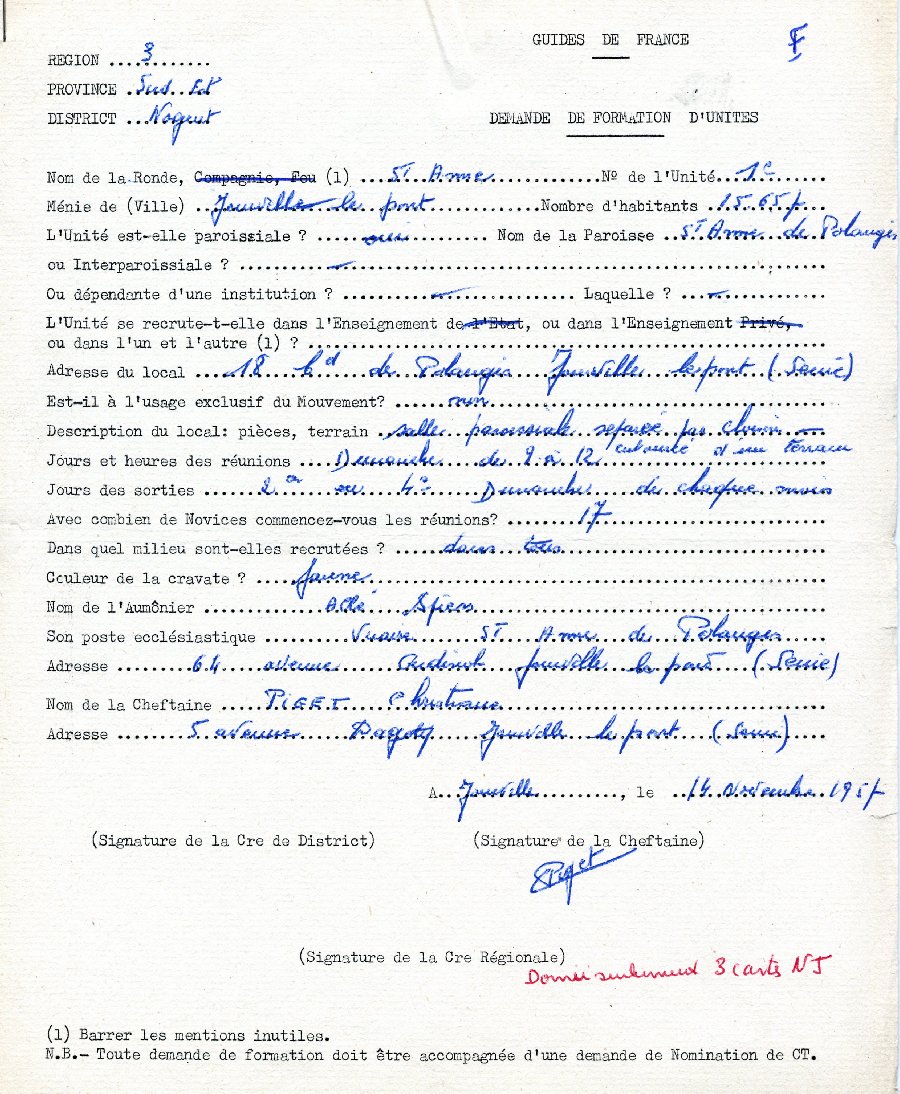 GUIDES DE FRANCE
F
REGION ....3.......
PROVINCE .Sud..Est
DISTRICT ...Nogent
DEMANDE DE FORMATION D'UNITES
Nom de la Ronde, Compagnie, Feu (1) ....St Anne.............Nº de l'Unité..1e.......
Ménie de (Ville) ..Joinville le pont..............Nombre d'habitants ..15.657...
L'Unité est-elle paroissiale ? ......oui......... Nom de la Paroisse ..St Anne..de Polangis
ou Interparoissiale ? ..........—..........
Ou dépendante d'une institution ? .........—............ Laquelle ? ...—............
L'Unité se recrute-t-elle dans l'Enseignement de l'Etat, ou dans l'Enseignement Privé,
ou dans l'un et l'autre (1) ? ..........
Adresse du local ....18 bd de Polangis Joinville le pont (Seine)
Est-il à l'usage exclusif du Mouvement? ......non..........
Description du local: pièces, terrain .salle paroissiale séparée par cloison —
entourée d'un terrain
Jours et heures des réunions ...Dimanche de 9 à 12
Jours des sorties .....2e ou 4e Dimanches de chaque mois
Avec combien de Novices commencez-vous les réunions? ........17..........
Dans quel milieu sont-elles recrutées ? ......dans tous..........
Couleur de la cravate ? ....jaune..........
Nom de l'Aumônier ............Abbé Spiess..........
Son poste ecclésiastique .........Vicaire St Anne de Polangis
Adresse ........64 avenue Oudinot Joinville le pont (Seine)
Nom de la Cheftaine .....PIGET Christiane..........
Adresse ........5 avenue Dagoty Joinville le pont (Seine)....
A...Joinville.........., le ..14 Novembre 1957
(Signature de la Cre de District) (Signature de la Cheftaine)
CPiget
(Signature de la Cre Régionale)
Donné seulement 3 cartes NJ
(1) Barrer les mentions inutiles.
N.B.- Toute demande de formation doit être accompagnée d'une demande de Nomination de CT.